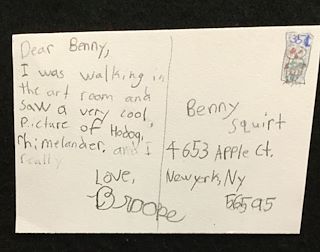 Dear Benny,
I was walking in
the art room and
saw a very cool
picture of Hodag,
rhimelander, and I
really
Love,
Brooke
Benny
Squirt
4653 Apple Ct.
Newyork, Ny
56595